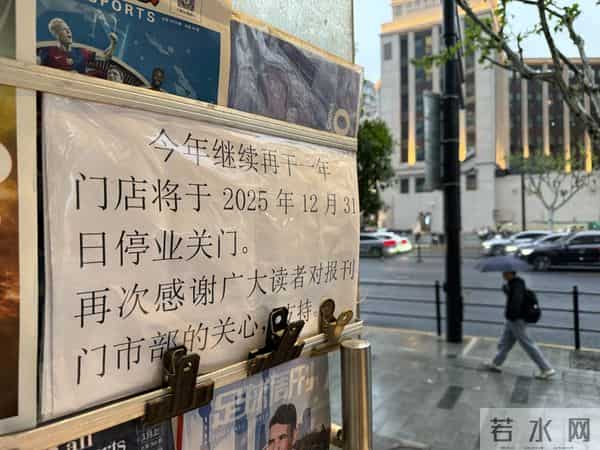 SPORTS
今年继续再干一年
门店将于 2025 年 12 月 31
日停业关门。
再次感谢广大读者对报刊
门市部的关心,支持。
足球周刊
若水网